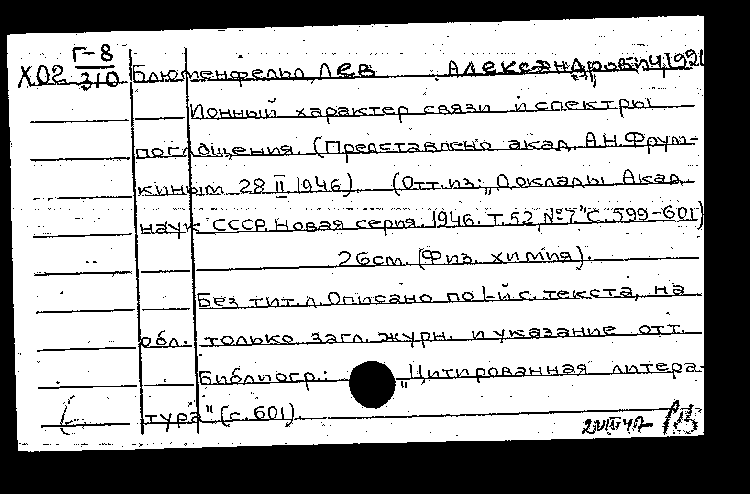 Г-8
ХО2 310 Блюменфельд, Лев Александрович, 1921
Ионный характер связи и спектры
поглощения. (Представлено акад. А.Н.Фрум-
киным 28 II 1946). (Отт.из: „Доклады Акад.
наук СССР. Новая серия. 1946. Т.52, №7" С. 599-601)
26см. (Физ. химия).
Без тит.л. Описано по 1-й с. текста, на
обл. только загл. журн. и указание отт.
Библиогр.: „Цитированная литера-
тура" (с. 601).